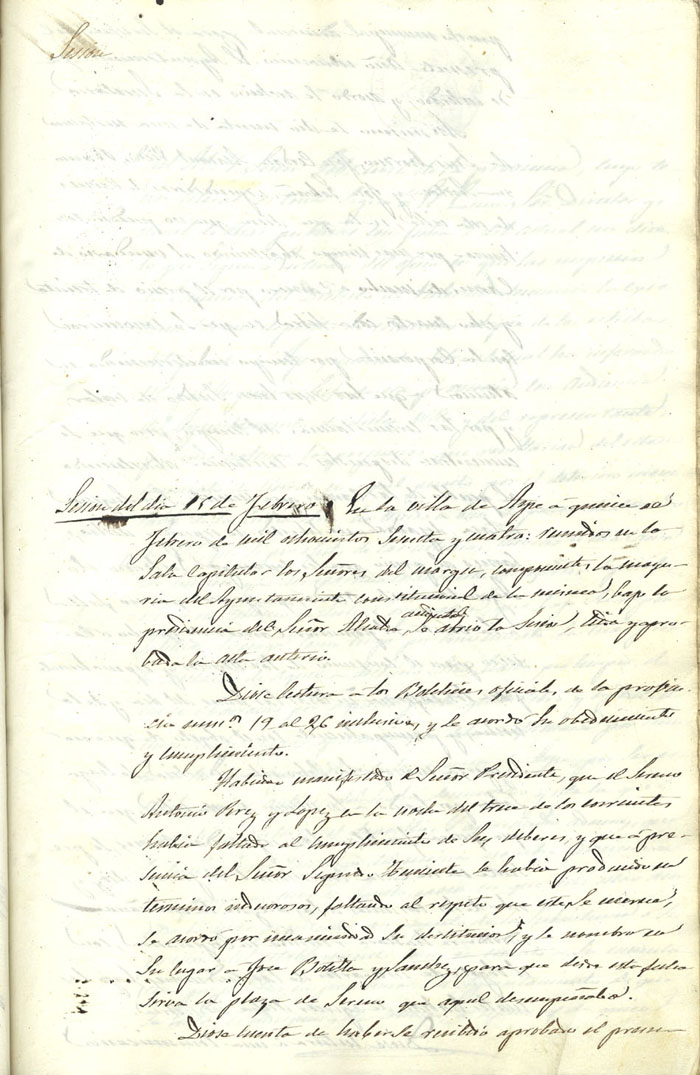 Sesion
Sesion del dia 15 de Febrero, En la villa de Aspe a quince de
Febrero de mil ochocientos Sesenta y cuatro: reunidos en la
Sala Capitular los Señores del margen, componentes la mayo-
ria del Ayuntamiento constitucional de la misma, bajo la
presidencia del Señor Alcalde, se abrio la Sesion, leida y apro-
bada la acta anterior.
Diose lectura a los Boletines oficiales, de la provin-
cia num.º 19 al 26 inclusive, y se acordo su obedecimiento
y cumplimiento.
Habiendo manifestado el Señor Presidente, que el Sereno
Antonio Perez y Lopez en la noche del trece de los corrientes
habia faltado al cumplimiento de sus deberes, y que a pre-
sencia del Señor Segundo Teniente se habia producido en
terminos indecorosos, faltando al respeto que este se merece,
se acordo por unanimidad su destitucion, y se nombro en
su lugar a Jose Botella y Sanchez, para que desde esta fecha
sirva la plaza de Sereno que aquel desempeñaba.
Diose cuenta de haberse recibido aprobado el presu-